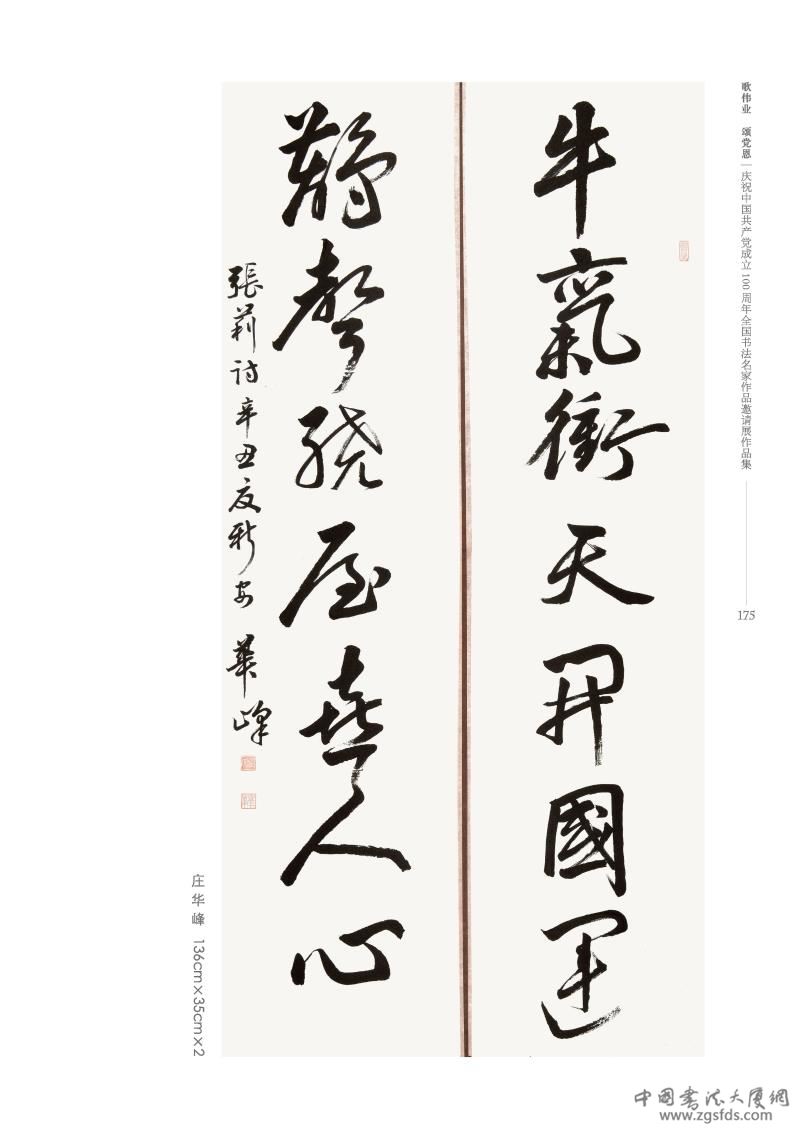 歌伟业 颂党恩 | 庆祝中国共产党成立100周年全国书法名家作品邀请展作品集
175
牛氣衝天開國運
鵲聲繞屋喜人心
張莉詩辛丑夏新安華峰
庄华峰 136cm×35cm×2
中国書法大厦網
www.zgsfds.com